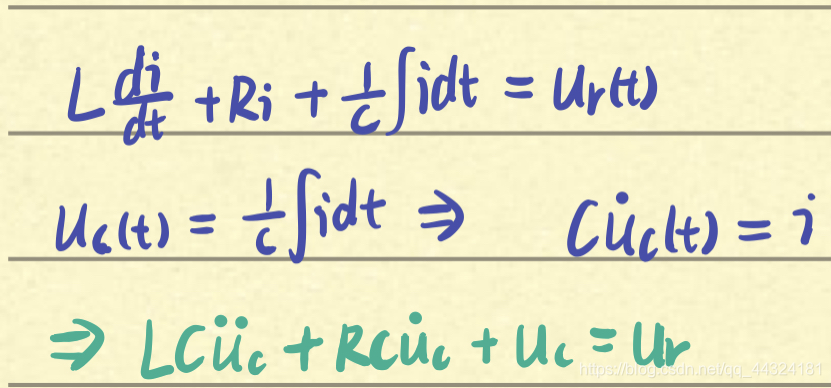 L di/dt + Ri + 1/C ∫idt = Ur(t)
Uc(t) = 1/C ∫idt ⇒ Cu̇c(t) = i
⇒ LCüc + RCu̇c + Uc = Ur
https://blog.csdn.net/qq_44324181